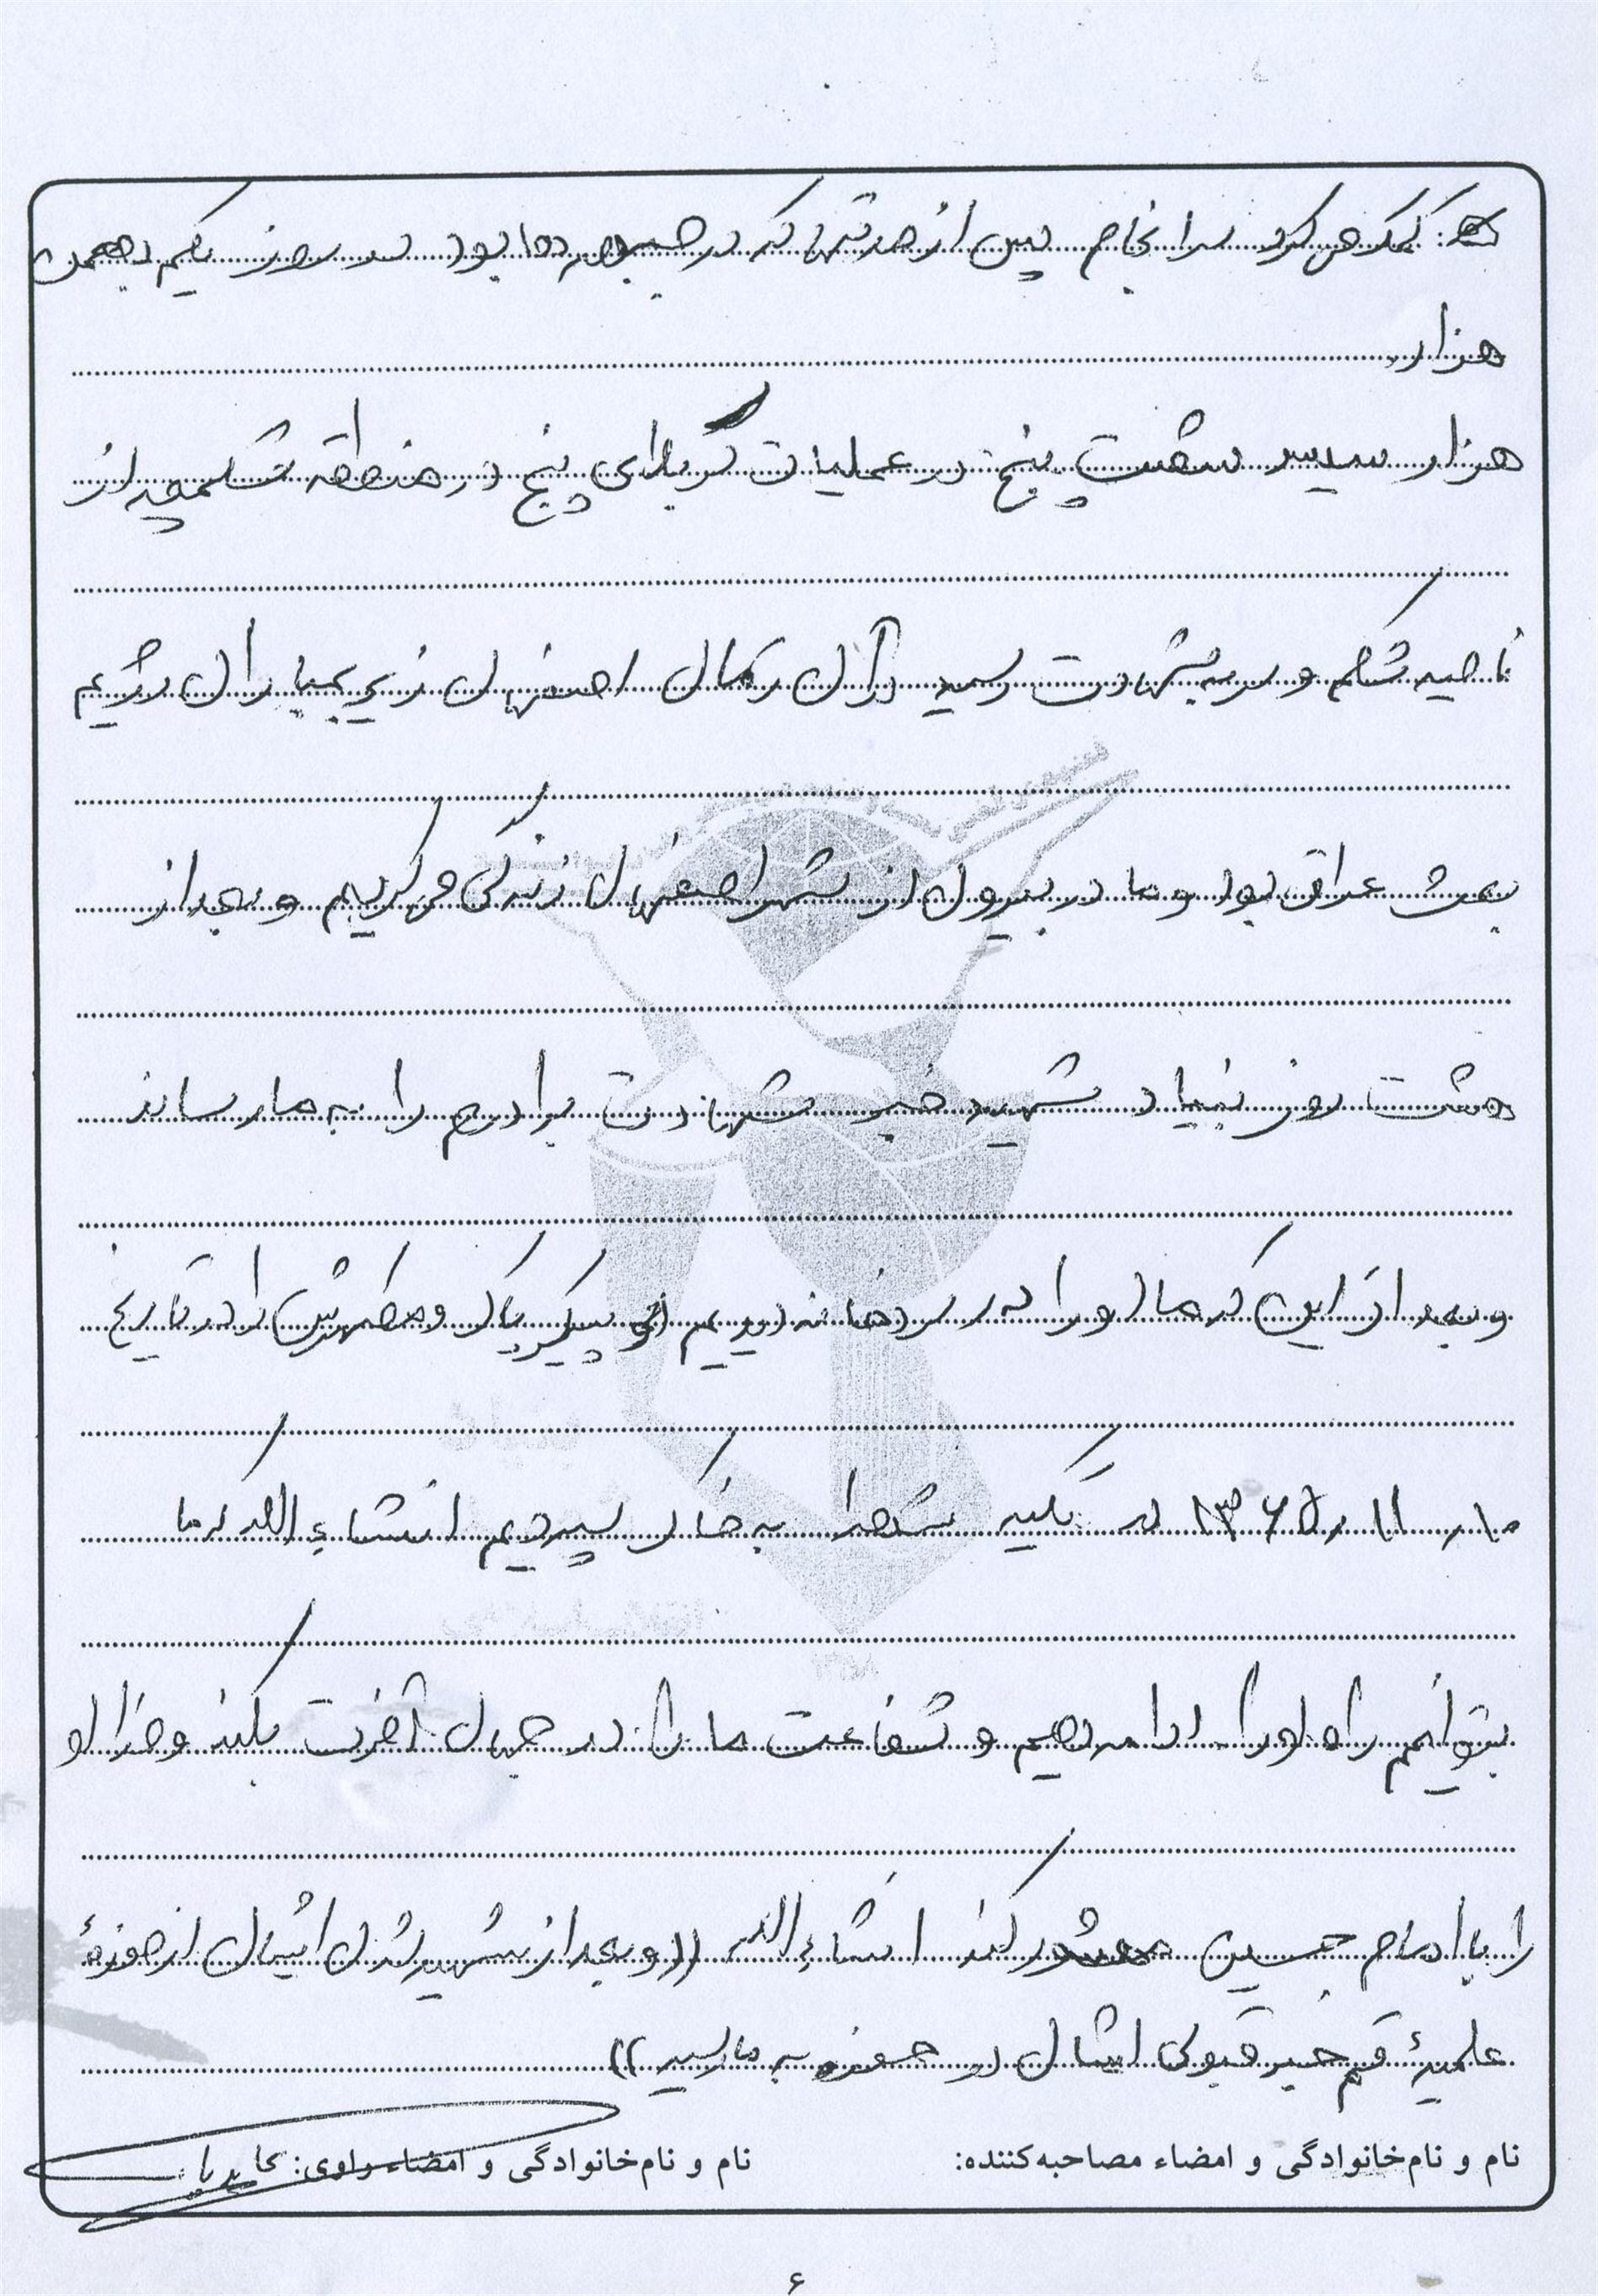 کمک می کرد سرانجام پس از مدتها که در جبهه ها بود در روز یکم بهمن
هزار
هزار سیسد شصت پنج در عملیات کربلای پنج در منطقه شلمچه از
ناحیه شکم و سر بشهادت رسید درآن زمان اصفهان زیر بمباران رژیم
بعث عراق بود و ما در بیرون از شهر اصفهان زندگی می کردیم و بعد از
هشت روز بنیاد شهید خبر شهادت برادرم را به ما رساند
و بعد از این که ما او را در سردخانه دیدیم پیکر پاک و مطهرش را در تاریخ
۱۰ ر ۱۱ ر ۱۳۶۵ در تکیه شهدا به خاک سپردیم انشاء الله که ما
بتوانیم راه او را ادامه دهیم و شفاعت ما را در جهان آخرت بکند و خدا او
را با امام حسین محشور کند انشاءالله ((و بعد از شهید شدن ایشان از حوزهٔ
علمیهٔ قم خبر قبولی ایشان در حوزه به ما رسید))
نام و نام‌خانوادگی و امضاء مصاحبه‌کننده: نام و نام‌خانوادگی و امضاء راوی:
۶